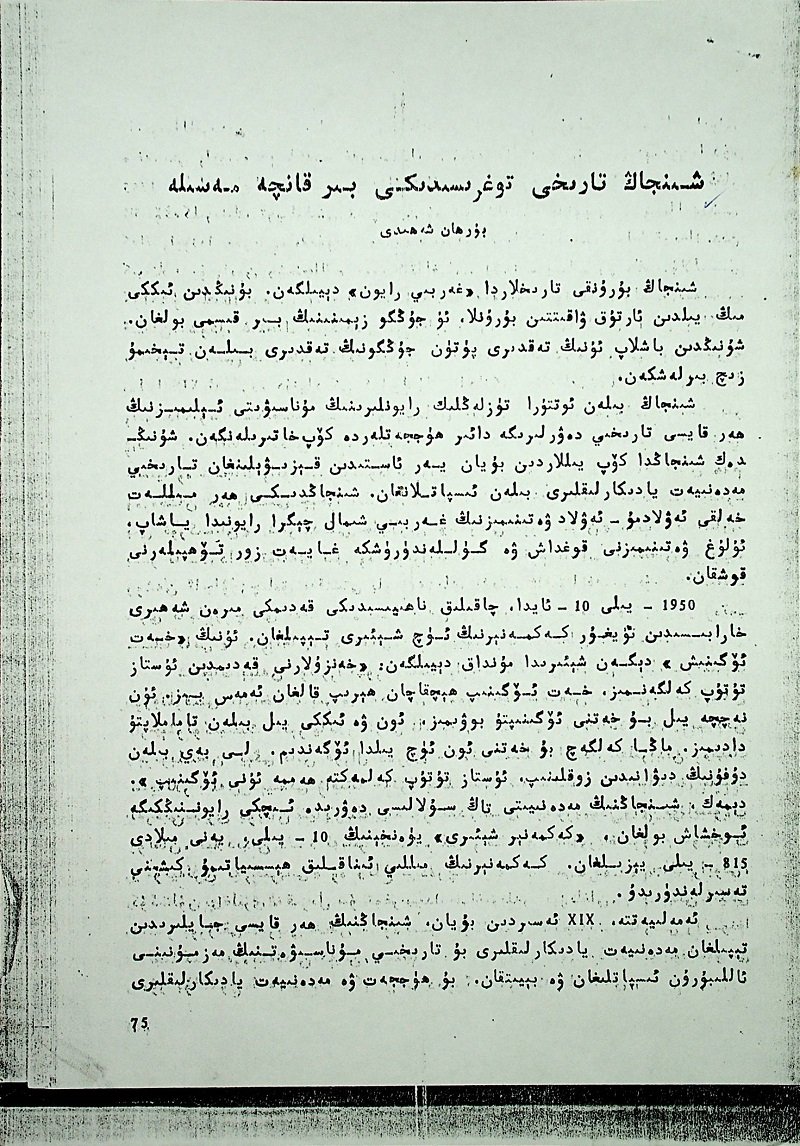 شىنجاڭ تارىخى توغرىسىدىكى بىر قانچە مەسىلە
بۇرھان شەھىدى
شىنجاڭ بۇرۇنقى تارىخلاردا «غەربىي رايون» دېيىلگەن. بۇنىڭدىن ئىككى
مىڭ يىلدىن ئارتۇق ۋاقىتتىن بۇرۇنلا، ئۇ جۇڭگو زېمىنىنىڭ بىر قىسمى بولغان.
شۇنىڭدىن باشلاپ ئۇنىڭ تەقدىرى پۈتۈن جۇڭگونىڭ تەقدىرى بىلەن تېخىمۇ
زىچ بىرلەشكەن.
شىنجاڭ بىلەن ئوتتۇرا تۈزلەڭلىك رايونلىرىنىڭ مۇناسىۋىتى ئېلىمىزنىڭ
ھەر قايسى تارىخىي دەۋرلىرىگە دائىر ھۆججەتلەردە كۆپ خاتىرىلەنگەن. شۇنىڭـ
دەك شىنجاڭدا كۆپ يىللاردىن بۇيان يەر ئاستىدىن قېزىۋېلىنغان تارىخىي
مەدەنىيەت يادىكارلىقلىرى بىلەن ئىسپاتلانغان. شىنجاڭدىكى ھەر مىللەت
خەلقى ئەۋلادمۇ - ئەۋلاد ۋەتىنىمىزنىڭ غەربىي شىمال چېگرا رايونىدا ياشاپ،
ئۇلۇغ ۋەتىنىمىزنى قوغداش ۋە گۈللەندۈرۈشكە غايەت زور تۆھپىلەرنى
قوشقان.
1950 - يىلى 10 - ئايدا، چاقىلىق ناھىيىسىدىكى قەدىمكى مىرەن شەھىرى
خارابىسىدىن ئۇيغۇر كەكمەنېرنىڭ ئۈچ شېئىرى تېپىلغان. ئۇنىڭ «خەت
ئۆگىنىش» دېگەن شېئىرىدا مۇنداق دېيىلگەن: «خەنزۇلارنى قەدىمدىن ئۇستاز
تۇتۇپ كەلگەنمىز، خەت ئۆگىنىپ ھېچقاچان ھېرىپ قالغان ئەمەس بىز. ئۇن
نەچچە يىل بۇ خەتنى ئۆگىنىپتۇ بوۋىمىز، ئون ۋە ئىككى يىل بىلەن تاماملاپتۇ
دادىمىز. ماڭا كەلگەچ بۇ خەتنى ئون ئۈچ يىلدا ئۆگەندىم. لى بەي بىلەن
دۇفۇنىڭ دىۋانىدىن زوقلىنىپ، ئۇستاز تۇتۇپ كەلمەكتە ھەممە ئۇنى ئۆگىنىپ».
دېمەك، شىنجاڭنىڭ مەدەنىيىتى تاڭ سۇلالىسى دەۋرىدە ئىچكى رايونىنىڭكىگە
ئوخشاش بولغان، «كەكمەنېر شېئىرى» يۈەنخېنىڭ 10 - يىلى، يەنى مىلادى
815 - يىلى يېزىلغان. كەكمەنېرنىڭ مىللىي ئىناقلىق ھېسسىياتىمۇ كىشىنى
تەسىرلەندۈرىدۇ.
ئەمەلىيەتتە، XIX ئەسىردىن بۇيان، شىنجاڭنىڭ ھەر قايسى جايلىرىدىن
تېپىلغان مەدەنىيەت يادىكارلىقلىرى بۇ تارىخىي مۇناسىۋەتنىڭ مەزمۇنىنى
ئاللىبۇرۇن ئىسپاتلىغان ۋە بېيىتقان. بۇ ھۆججەت ۋە مەدەنىيەت يادىكارلىقلىرى
75